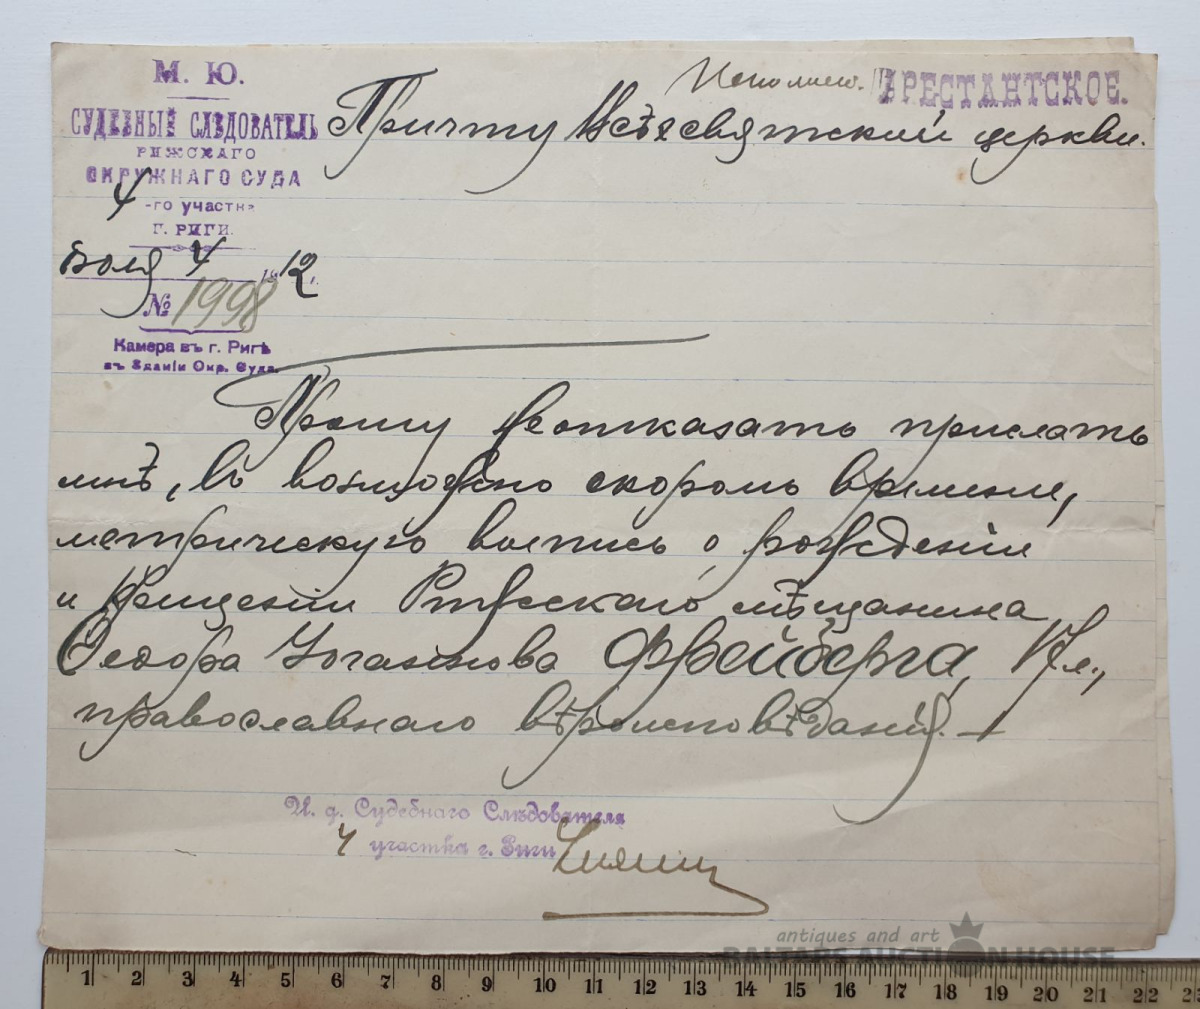 М. Ю.
СУДЕБНЫЙ СЛѢДОВАТЕЛЬ
РИЖСКАГО
ОКРУЖНАГО СУДА
4 -го участка
Г. РИГИ.
Іюля 4 1912 г.
№ 1998
Камера въ г. Ригѣ
въ Зданіи Окр. Суда.
Исполнено.
АРЕСТАНТСКОЕ.
Причту Всѣхсвятский церкви.
Прошу не отказать прислать
мнѣ, въ возможно скоромъ времени,
метрическую выпись о рожденіи
и крещеніи Рижскаго мѣщанина
Ѳедора Іоганнова Фрейберга, 17 л.,
православнаго вѣроисповѣданія.
И. д. Судебнаго Слѣдователя
4 участка г. Риги
antiques and art
BALTARS AUCTION HOUSE
1 2 3 4 5 6 7 8 9 10 11 12 13 14 15 16 17 18 19 20 21 22 23